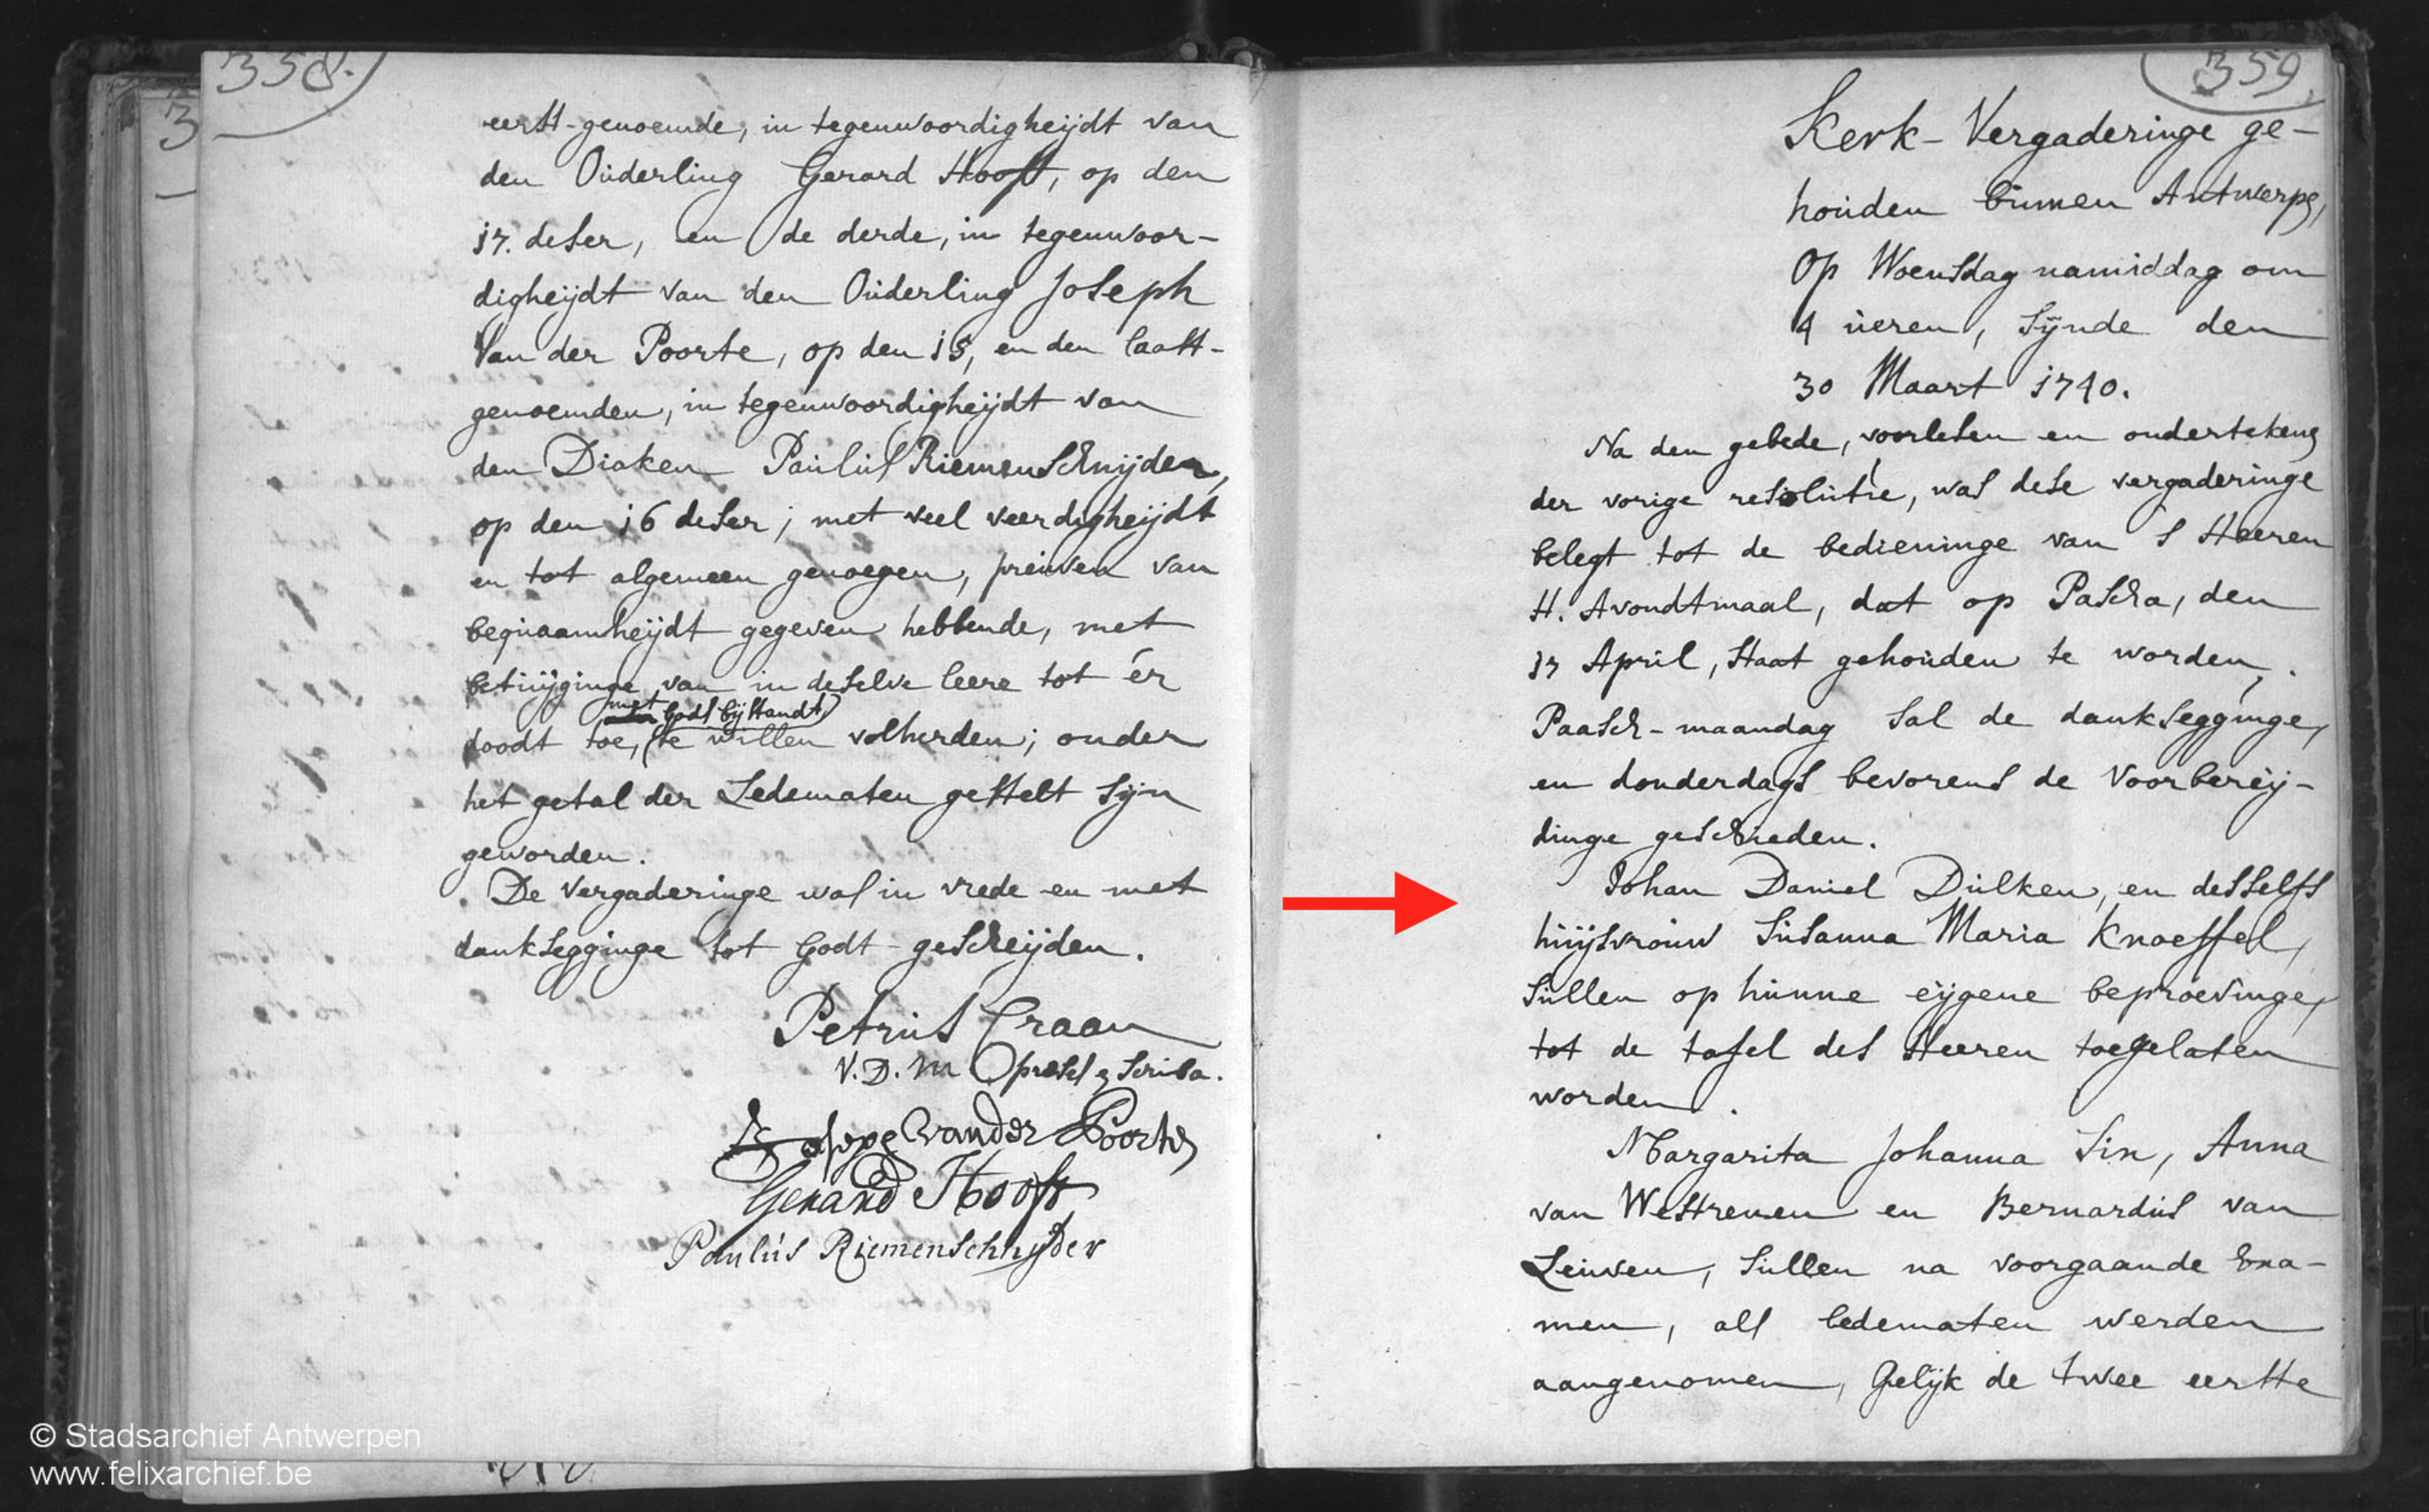 358.
3
eerst-genoemde, in tegenwoordigheijdt van
den Ouderling Gerard Hooft, op den
17. deser, en de derde, in tegenwoor-
digheijdt van den Ouderling Joseph
Van der Poorte, op den 15, en den laast-
genoemden, in tegenwoordigheijdt van
den Diaken Paulus Riemenschnijder,
op den 16 deser; met veel veerdigheijdt
en tot algemeen genoegen, preuven van
bequaamheijdt gegeven hebbende, met
betuijginge van in deselve leere tot er
met Gods bijstandt
doodt toe, te willen volherden; onder
het getal der Ledematen gestelt sijn
geworden.
De Vergaderinge was in vrede en met
dankSegginge tot Godt gescheijden.
Petrus Craan
V.D.M præses & scriba.
Joseph vander Poorte
Gerard Hooft
Paulus Riemenschnyder
359.
Kerk-Vergaderinge ge-
houden binnen Antwerpen,
Op Woensdag namiddag om
4 ueren, Sijnde den
30 Maart 1740.
Na den gebede, voorlesen en ondertekeng
der vorige resolutie, was dese vergaderinge
belegt tot de bedieninge van s Heeren
H. Avondtmaal, dat op Pascha, den
17 April, Staat gehouden te worden.
Paasch-maandag Sal de dankSegginge,
en donderdags bevorens de Voorbereij-
dinge geschieden.
Johan Daniel Dulken, en desselfs
huijsvrouw Susanna Maria Knoeffel,
Sullen op hunne eijgene beproevinge,
tot de tafel des Heeren toegelaten
worden.
Margarita Johanna Sin, Anna
van Westrenen en Bernardus van
Leuven, Sullen na voorgaande Exa-
men, als ledematen werden
aangenomen, Gelijk de twee eerste
© Stadsarchief Antwerpen
www.felixarchief.be